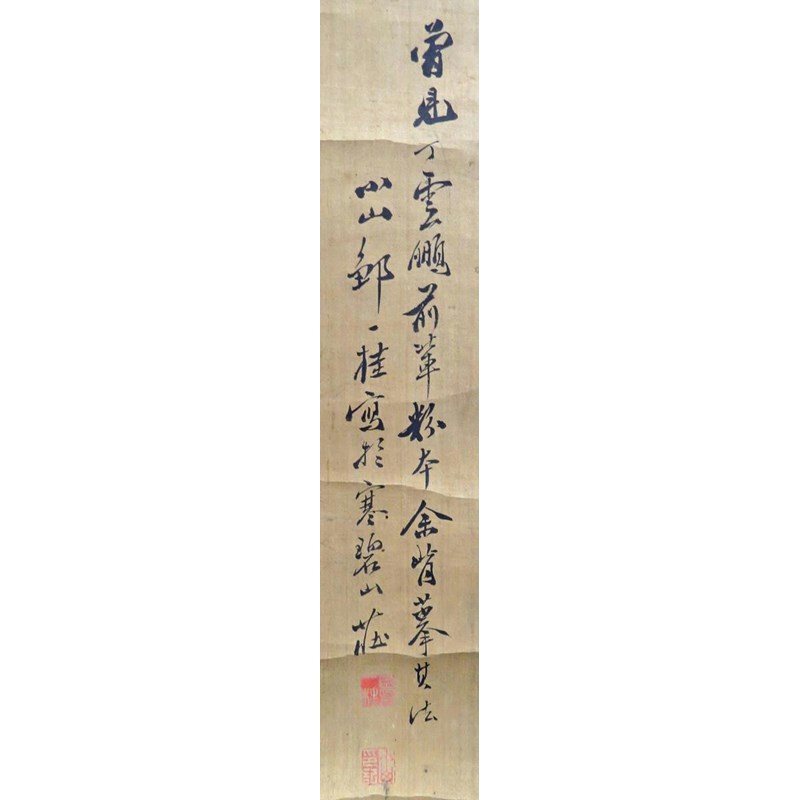 曾見丁雲鵬前輩粉本余背摹其法
小山鄒一桂寫於寒碧山莊